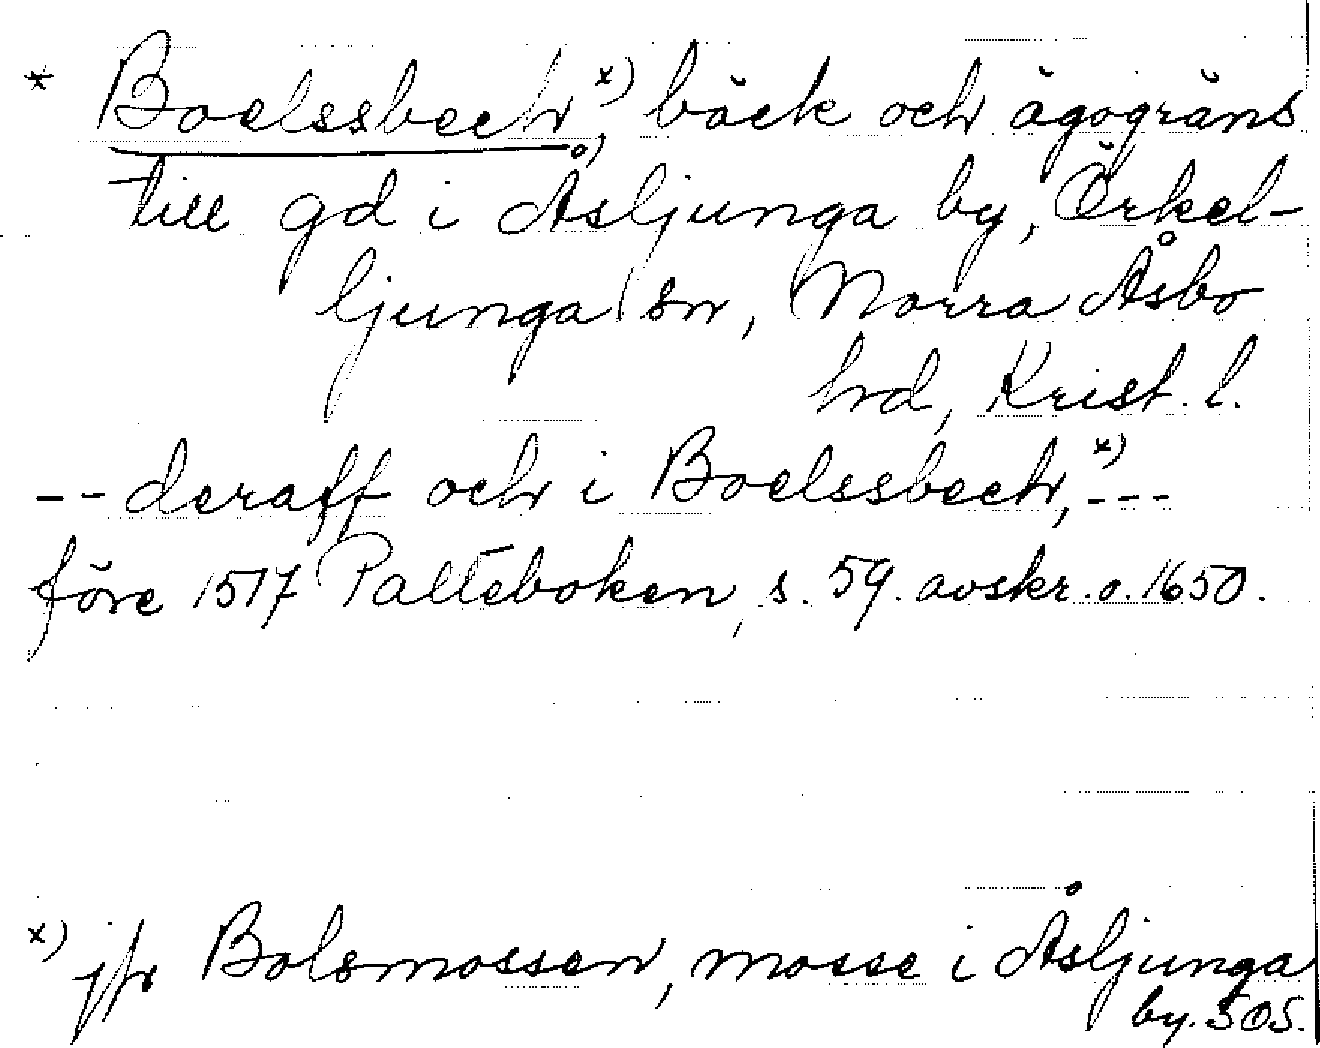 * Boelssbech,*) bäck och ägogräns
till gd i Åsljunga by, Örkel-
ljunga sn, Norra Åsbo
hd, Krist. l.
-- deraff och i Boelssbech,*) ---
före 1517 Palteboken, s. 59. avskr. o. 1650.
x) jfr Bolsmossen, mosse i Åsljunga
by. SOS.